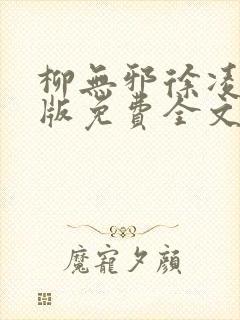 柳無邪徐凌
版免費全文
魔寵夕顏